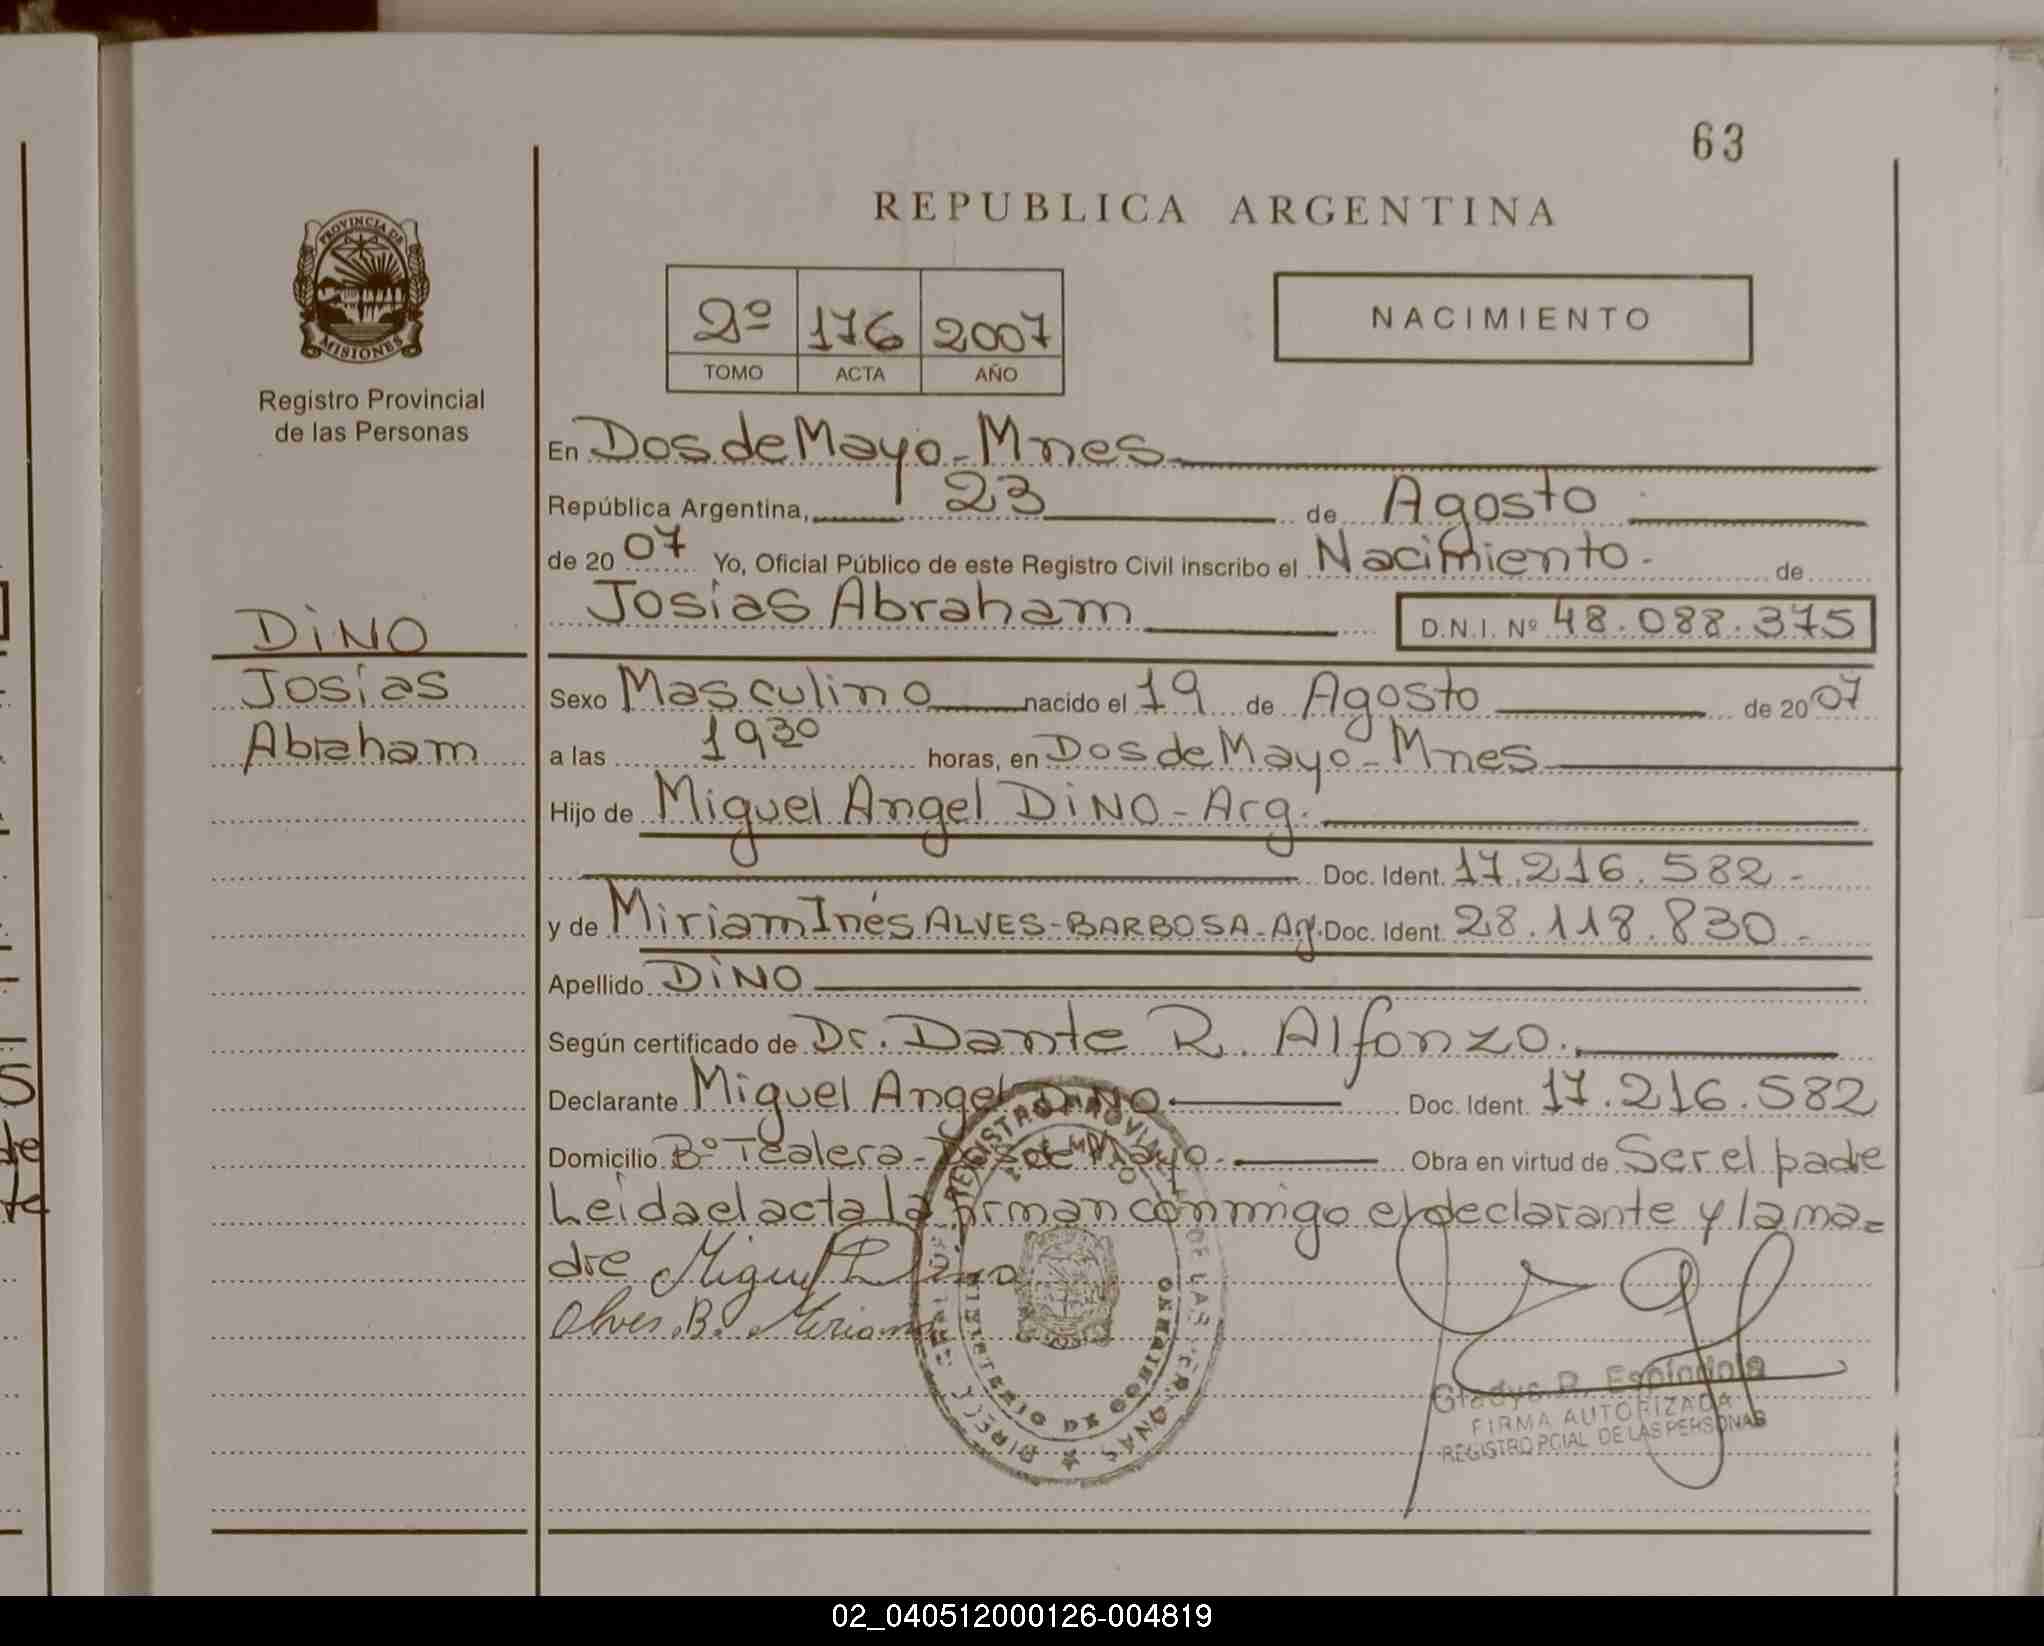 63
REPUBLICA ARGENTINA
PROVINCIA DE
MISIONES
Registro Provincial
de las Personas
2º 176 2007
TOMO ACTA AÑO
NACIMIENTO
En Dos de Mayo - Mnes
República Argentina, 23 de Agosto
de 2007 Yo, Oficial Público de este Registro Civil inscribo el Nacimiento - de
Josías Abraham D.N.I. Nº 48.088.375
DiNO
Josías
Abraham
Sexo Masculino nacido el 19 de Agosto de 2007
a las 19 30 horas, en Dos de Mayo - Mnes
Hijo de Miguel Angel DiNO - Arg.
Doc. Ident. 17.216.582 -
y de Miriam Inés ALVES-BARBOSA - Arg. Doc. Ident. 28.118.830 -
Apellido DiNO
Según certificado de Dr. Dante R. Alfonzo.
Declarante Miguel Angel DiNO Doc. Ident. 17.216.582
Domicilio Bº Tealera - Dos de Mayo - Obra en virtud de Ser el padre
Leida el acta la firman conmigo el declarante y la ma=
dre Miguel Dino
Alves B. Miriam
Gladys R. Espindola
FIRMA AUTORIZADA
REGISTRO PCIAL DE LAS PERSONAS
02_040512000126-004819